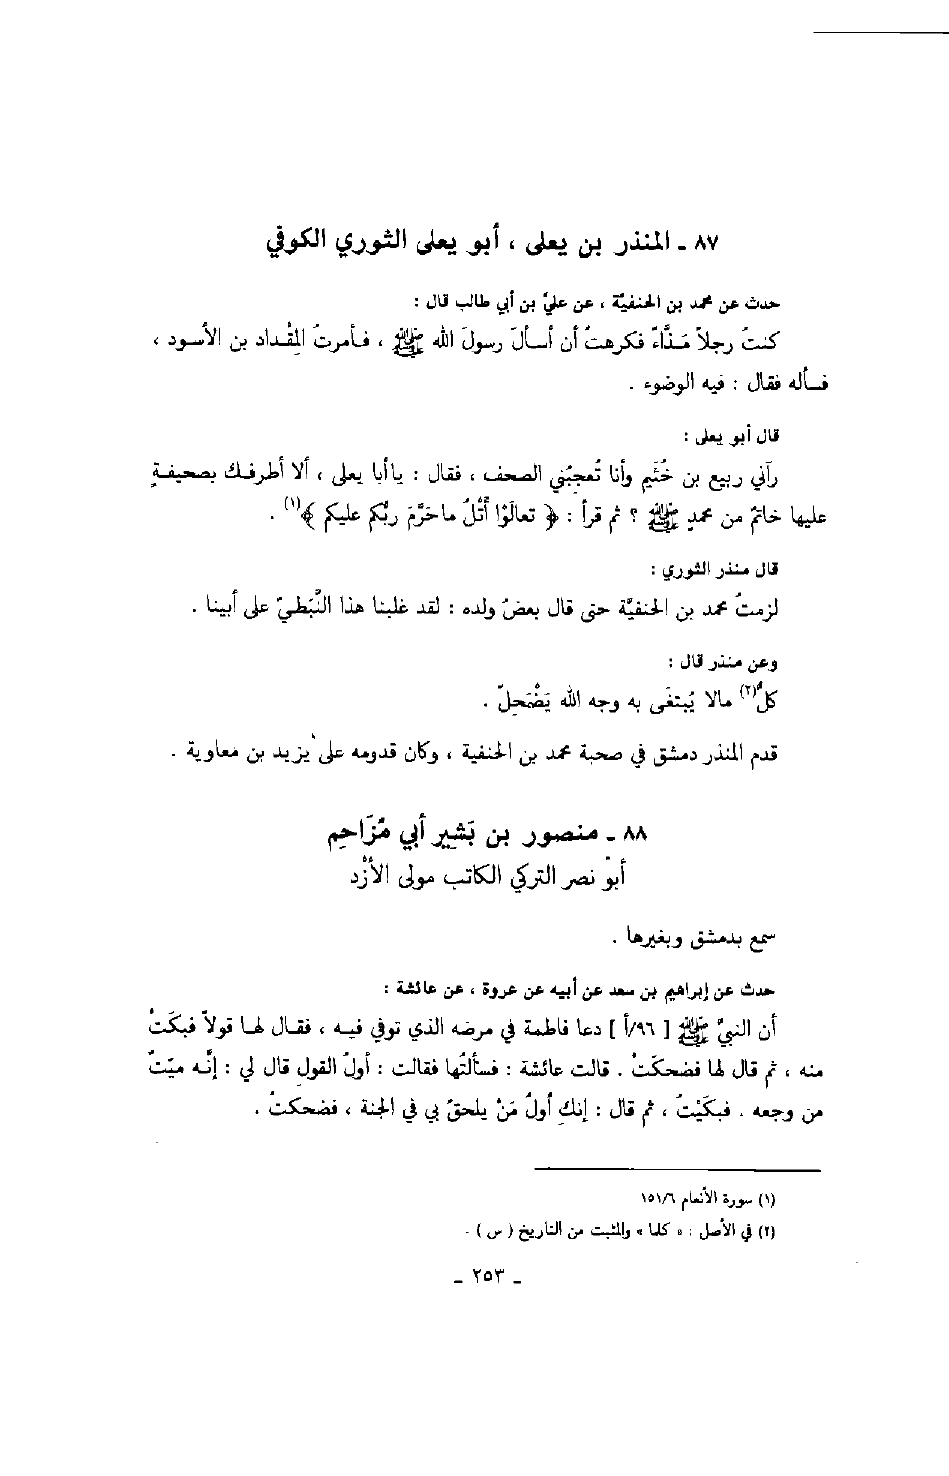 ٨٧ ـ المنذر بن يعلى ، أبو يعلى الثوري الكوفي
حدث عن محمد بن الحنفيّة ، عن عليّ بن أبي طالب قال :
كنتُ رجلاً مَذَّاءً فكرهتُ أن أسألَ رسولَ الله ﷺ ، فأمرتُ المِقْداد بن الأسود ،
فسأله فقال : فيه الوضوء .
قال أبو يعلى :
رآني ربيع بن خُثَيم وأنا تُعجبُني الصحف ، فقال : ياأبا يعلى ، ألا أطرفك بصحيفةٍ
عليها خاتَم من محمدٍ ﷺ ؟ ثم قرأ : ﴿ تعالَوْا أَتْلُ ماحَرَّمَ ربُّكم عليكم ﴾(١) .
قال منذر الثوري :
لزمتُ محمد بن الحنفيَّة حتى قال بعضُ ولده : لقد غلبنا هذا النَّبَطيّ على أبينا .
وعن منذر قال :
كلُّ(٢) مالا يُبتغَى به وجه الله يَضْمَحِلّ .
قدم المنذر دمشق في صحبة محمد بن الحنفية ، وكان قدومه على يزيد بن معاوية .
٨٨ ـ منصور بن بَشير أبي مُزَاحِم
أبو نصر التركي الكاتب مولى الأزْد
سمع بدمشق وبغيرها .
حدث عن إبراهيم بن سعد عن أبيه عن عروة ، عن عائشة :
أن النبيّ ﷺ [ ٩٦/أ ] دعا فاطمة في مرضه الذي توفي فيه ، فقال لها قولاً فبكَتْ
منه ، ثم قال لها فضحكَتْ . قالت عائشة : فسألتُها فقالت : أولُ القولِ قال لي : إنَّه ميّتٌ
من وجعه . فبكَيْتُ ، ثم قال : إنكِ أولُ مَنْ يلحقُ بي في الجنة ، فضحكتُ .
(١) سورة الأنعام ١٥١/٦
(٢) في الأصل : « كلما » والمثبت من التاريخ ( س ) .
ـ ٢٥٣ ـ